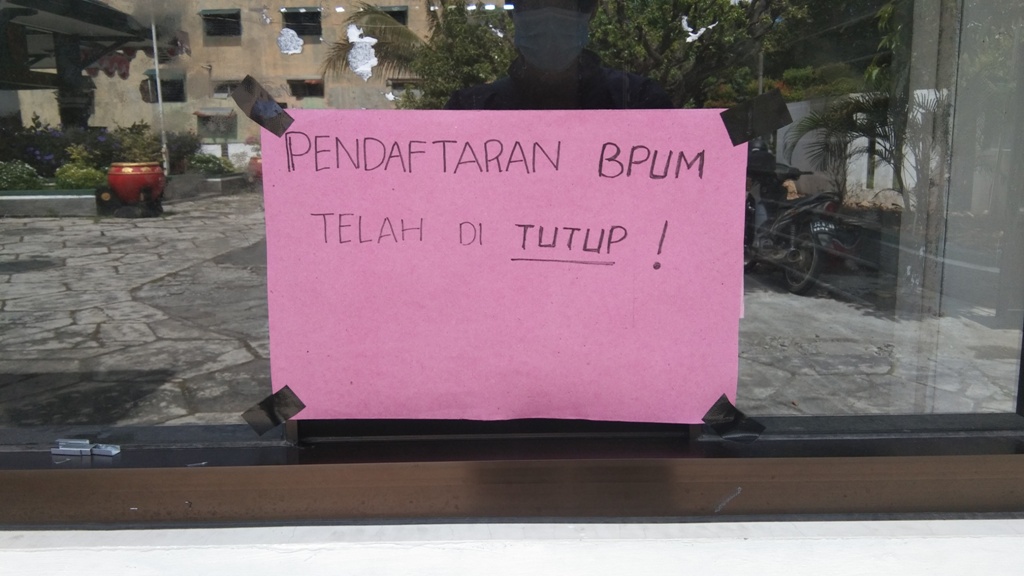 PENDAFTARAN BPUM
TELAH DI TUTUP !